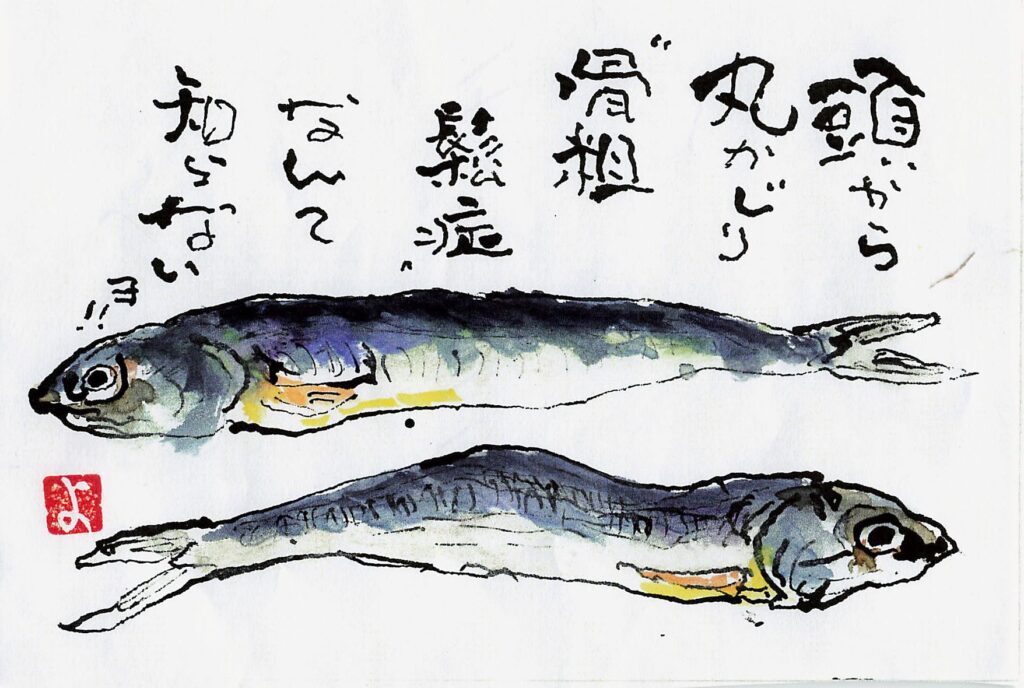 頭から
丸かじり
"骨粗
鬆症"
なんて
知らない
ヨ!!
よ